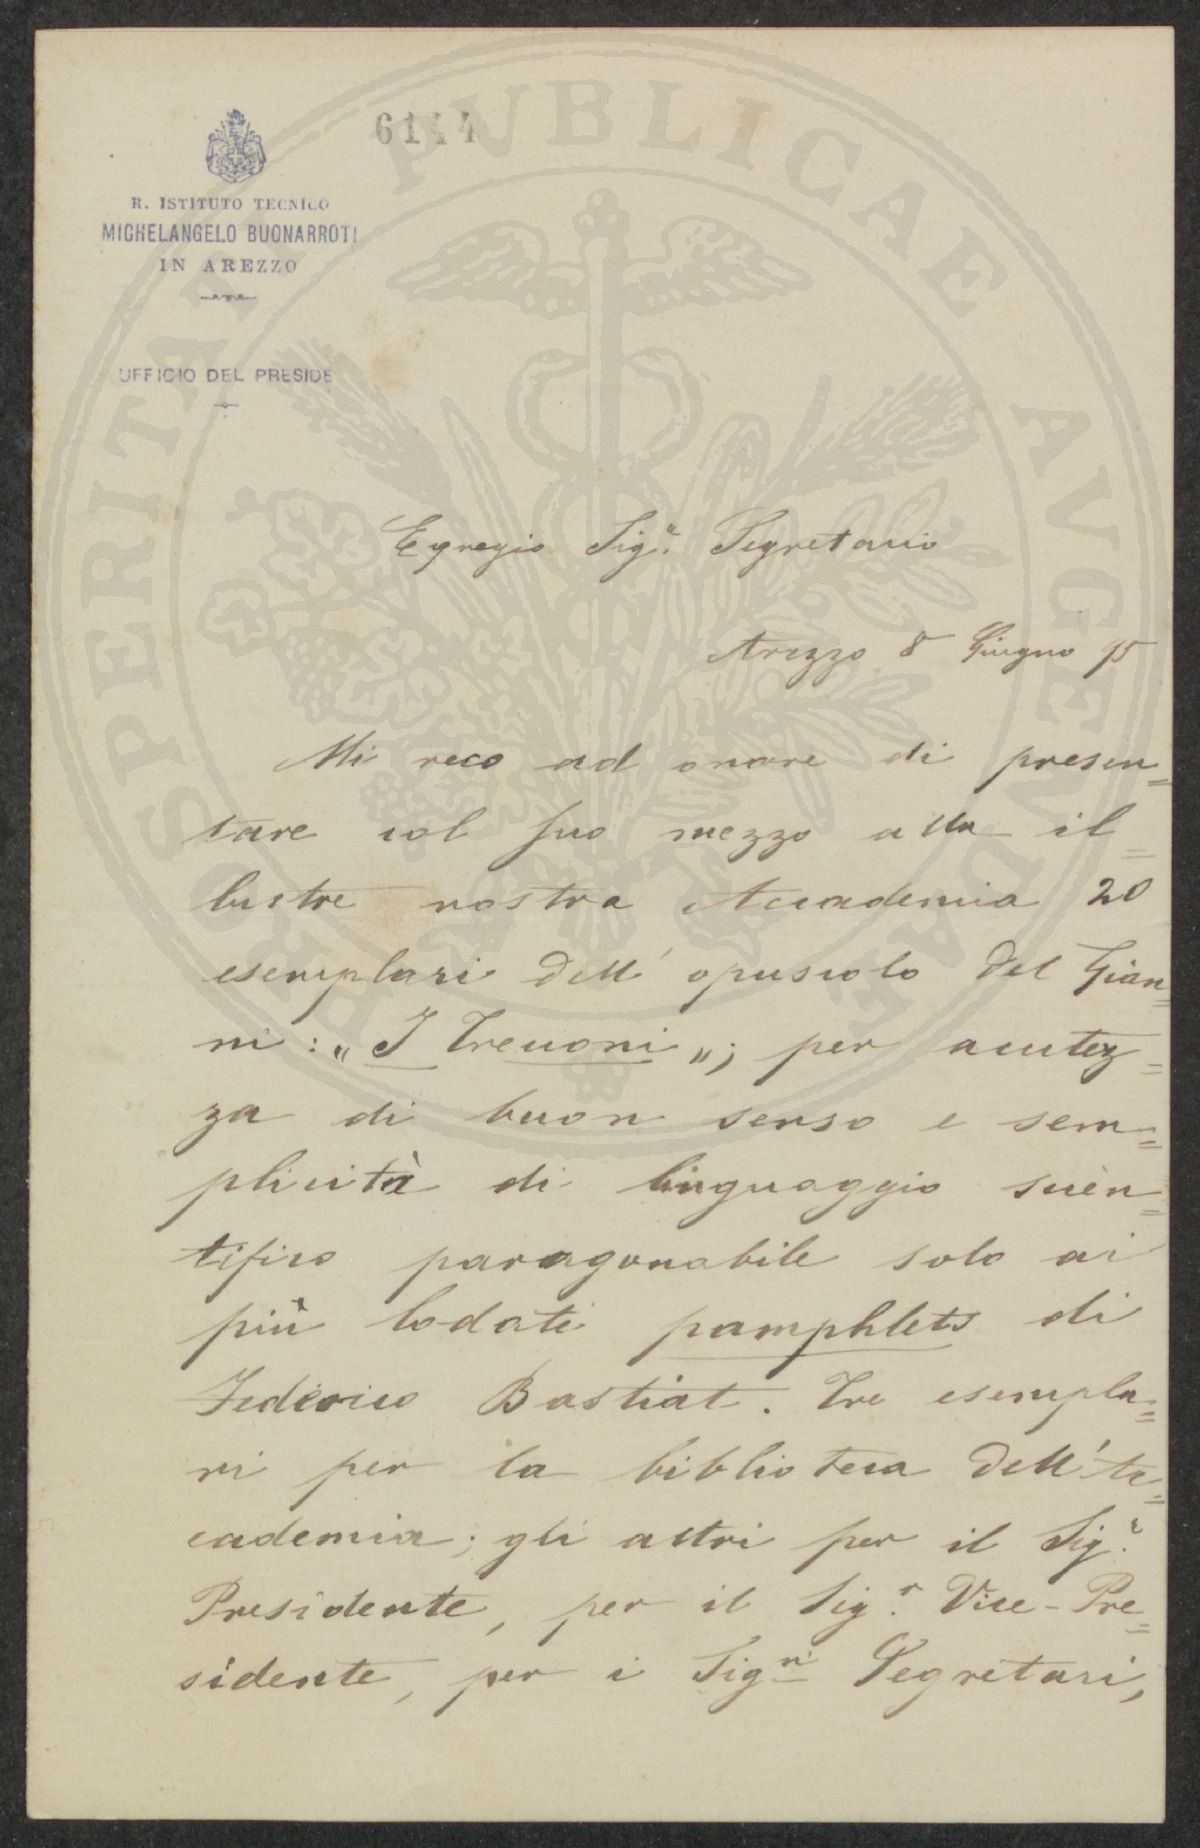 6144
R. ISTITUTO TECNICO
MICHELANGELO BUONARROTI
IN AREZZO
UFFICIO DEL PRESIDE
PROSPERITATI PVBLICAE AVGENDAE
Egregio Sigr. Segretario
Arezzo 8 Giugno 95
Mi reco ad onore di presen=
tare col suo mezzo alla il=
lustre nostra Accademia 20
esemplari dell'opuscolo del Gian=
ni: „I Treuoni„; per acutez=
za di buon senso e sem=
plicità di linguaggio scien=
tifico paragonabile solo ai
più lodati pamphlets di
Federico Bastiat. Tre esempla=
ri per la biblioteca dell'Ac=
cademia; gli altri per il Sigr.
Presidente, per il Sigr. Vice-Pre=
sidente, per i Sigri Segretari,